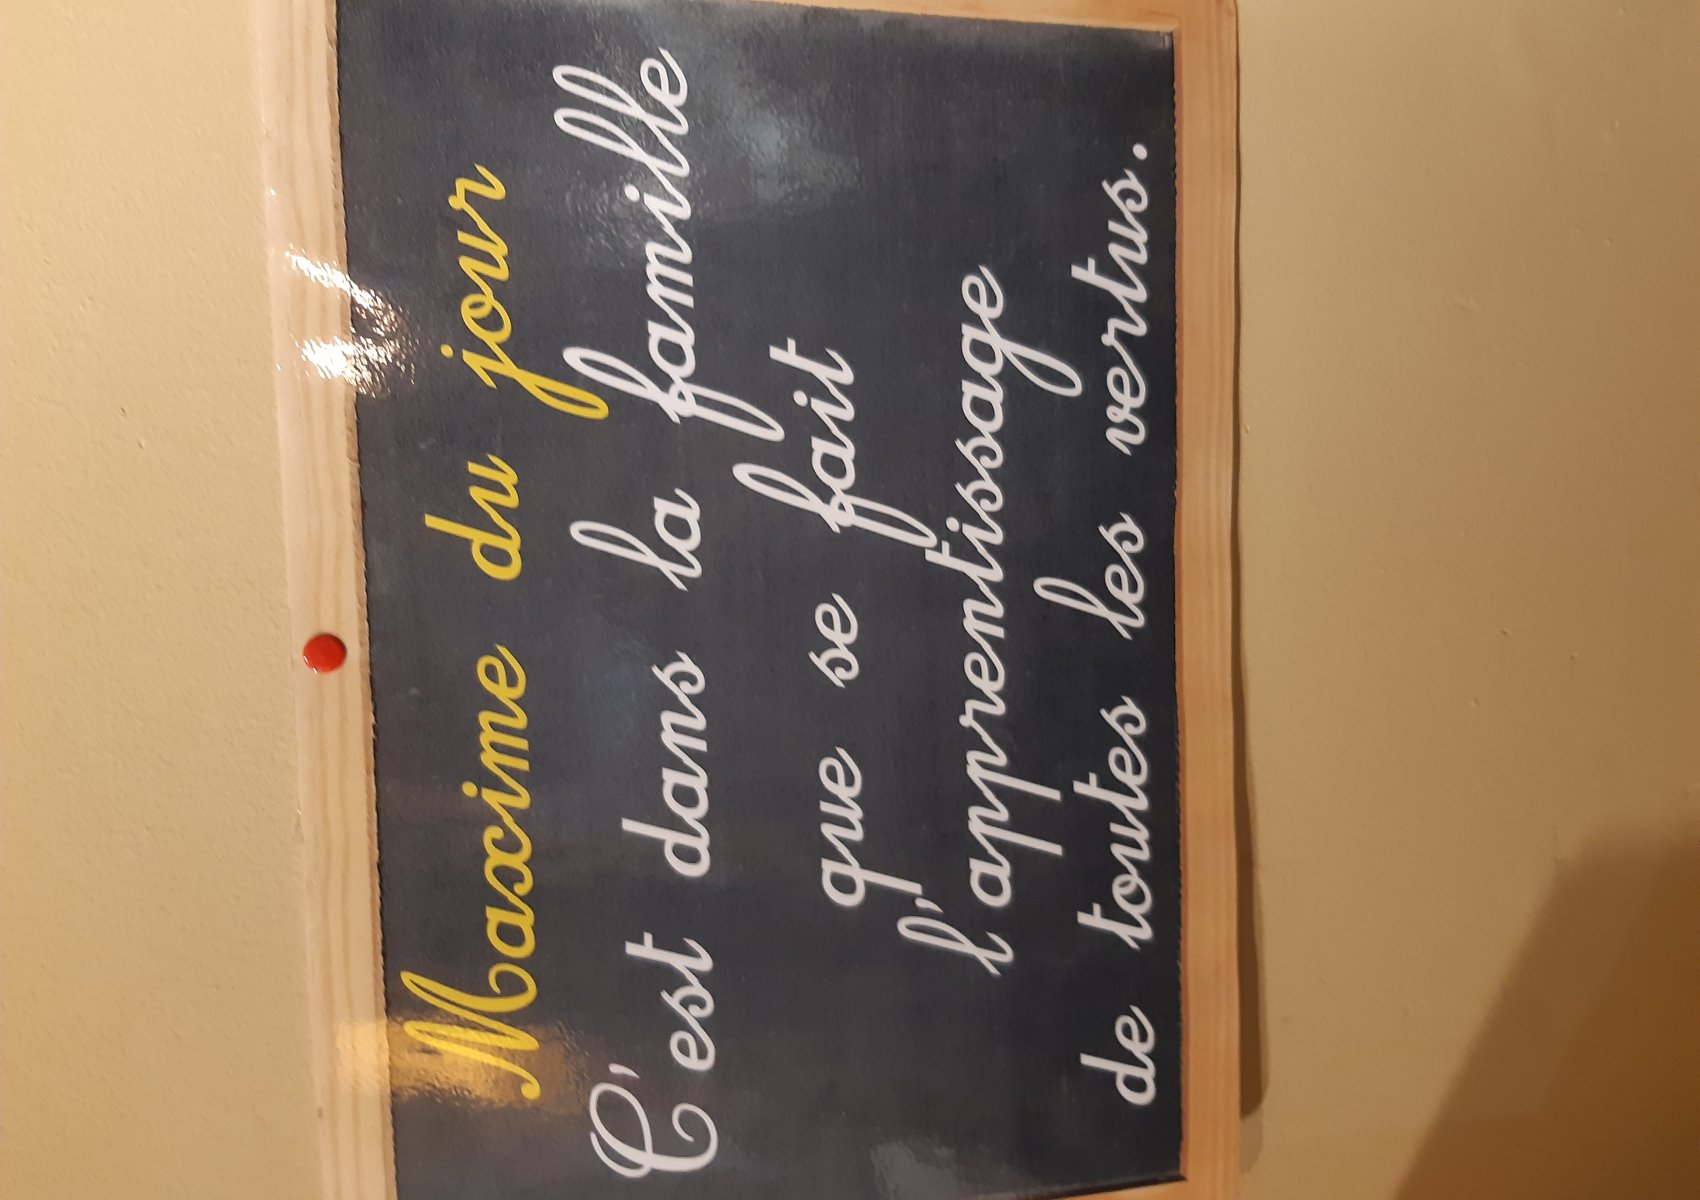 Maxime du jour
C'est dans la famille
que se fait
l'apprentissage
de toutes les vertus.